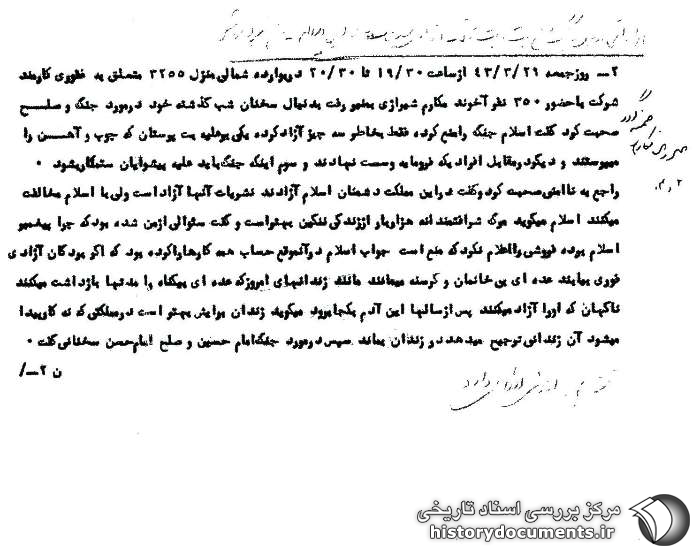 ۲ــ روزجمعه ۴۳/۳/۲۹ ازساعت ۱۹/۳۰ تا ۲۰/۳۰ دریوارده شمالی منزل ۳۲۵۵ متعلق به ظهوری کارمند
شرکت باحضور ۳۵۰ نفر آخوند مکارم شیرازی بمنبر رفت بدنبال سخنان شب گذشته خود درمورد جنگ و صلح
صحبت کرد گفت اسلام جنگ رامنع کرده فقط بخاطر سه چیز آزادکرده یکی برعلیه بت پرستان که چوب و آهن را
میپرستند و دیگردرمقابل افراد یک فرومایه وپست نهادند و سوم اینکه جنگ باید علیه پیشوایان ستمکاربشود ۰
راجع به ناامنی صحبت کرد وگفت دراین مملکت دشمنان اسلام آزادند نشریات آنها آزاد است ولی با اسلام مخالفت
میکنند اسلام میگوید مرگ شرافتمندانه هزاربار اززندگی ننگین بهتراست و گفت سئوالی ازمن شده بود که چرا پیغمبر
اسلام برده فروشی رااعلام نکرد که منع است جواب اسلام درآنموقع حساب همه کارهاراکرده بود که اگر بردگان آزادی
فوری بیابند عده ای بی خانمان و گرسنه میمانند مانند زندانیهای امروزکه عده ای بیگناه را مدتها بازداشت میکنند
ناگهان که اورا آزاد میکنند پس ازسالها این آدم یکجا برود میگوید زندان برایش بهتر است درمملکتی که نه کارپیدا
میشود آن زندانی ترجیح میدهد در زندان بماند سپس درمورد جنگ امام حسین و صلح امام حسن سخنانی گفت ۰
ن ۲ــ/
مرکز بررسی اسناد تاریخی
historydocuments.ir